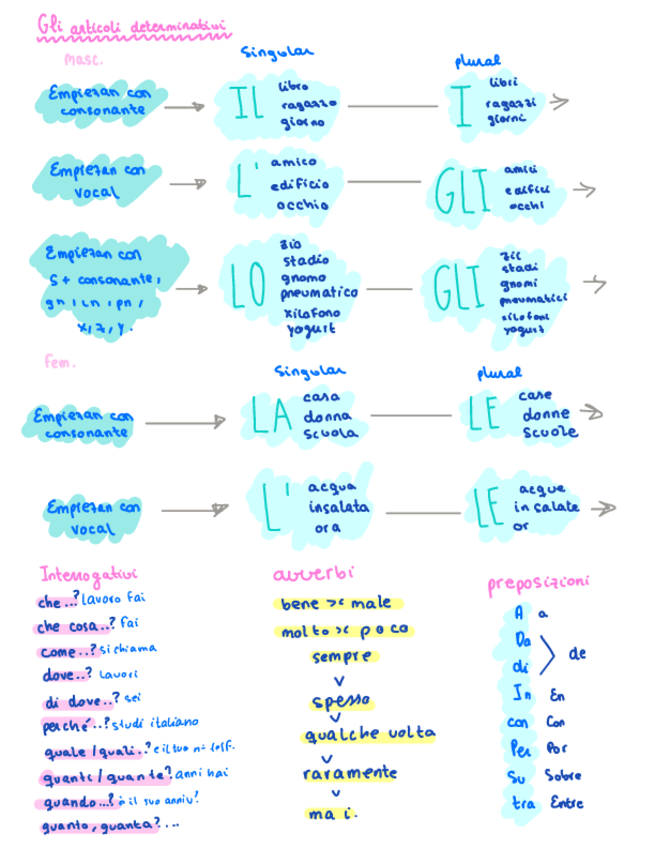 Gli articoli determinativi
masc.
Singular
plural
Empiezan con
consonante
IL
libro
ragazzo
giorno
I
libri
ragazzi
giorni
Empiezan con
vocal
L'
amico
edificio
occhio
GLI
amici
edifici
occhi
Empiezan con
s + consonante,
gn, pn,
x, z, y.
LO
zio
stadio
gnomo
pneumatico
xilofono
yogurt
GLI
stadi
gnomi
pneumatici
xilofoni
yogurt
fem.
Singular
plural
Empiezan con
consonante
LA
casa
donna
scuola
LE
case
donne
scuole
Empiezan con
vocal
L'
acqua
insalata
ora
LE
acque
insalate
or
Interrogativi
che...? lavoro fai
che cosa..? fai
come..? si chiama
dove..? lavori
di dove..? sei
perché..? studi italiano
quale / quali..? e il tuo
quanti / quante? anni hai
quando...? è il suo anniv?
quanto, quanta?...
avverbi
bene >< male
molto >< poco
sempre
v
spesso
v
qualche volta
v
raramente
v
mai.
preposizioni
A a
Da
di
de
In En
con Con
Per Por
Su Sobre
tra Entre